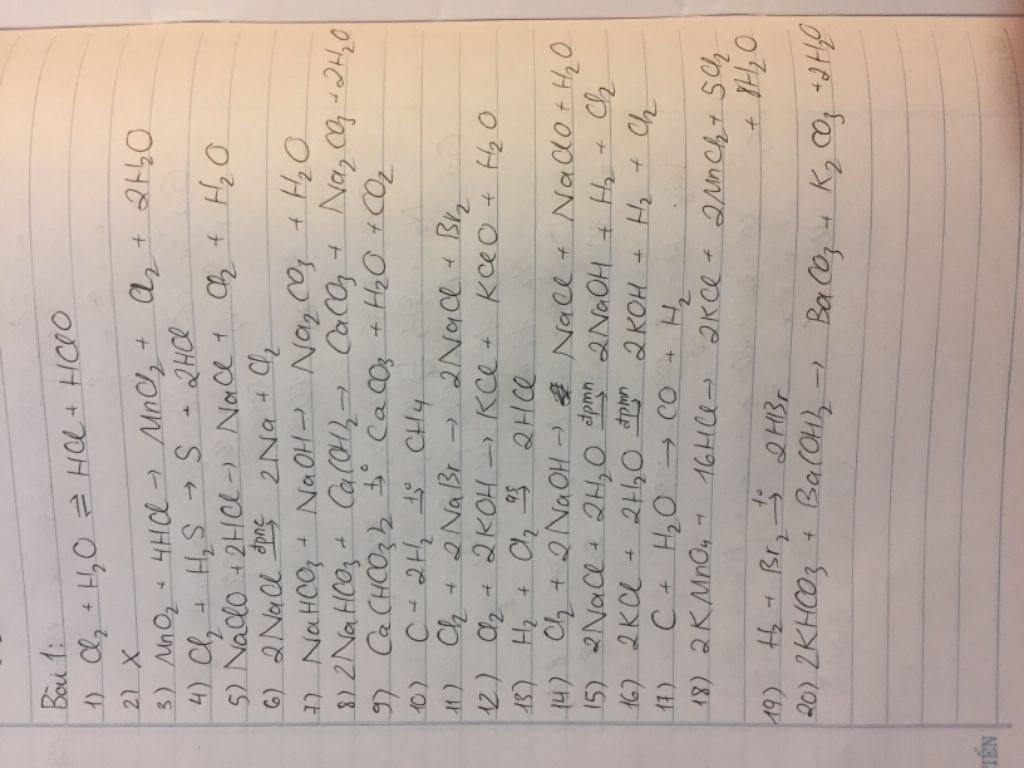 Bài 1:
1) Cl₂ + H₂O ⇌ HCl + HClO
2) X
3) MnO₂ + 4HCl → MnCl₂ + Cl₂ + 2H₂O
4) Cl₂ + H₂S → S + 2HCl
5) NaClO + 2HCl → NaCl + Cl₂ + H₂O
6) 2NaCl đpnc→ 2Na + Cl₂
7) NaHCO₃ + NaOH → Na₂CO₃ + H₂O
8) 2NaHCO₃ + Ca(OH)₂ → CaCO₃ + Na₂CO₃ + 2H₂O
9) Ca(HCO₃)₂ t°→ CaCO₃ + H₂O + CO₂
10) C + 2H₂ t°→ CH4
11) Cl₂ + 2NaBr → 2NaCl + Br₂
12) Cl₂ + 2KOH → KCl + KClO + H₂O
13) H₂ + Cl₂ as→ 2HCl
14) Cl₂ + 2NaOH → NaCl + NaClO + H₂O
15) 2NaCl + 2H₂O đpmn→ 2NaOH + H₂ + Cl₂
16) 2KCl + 2H₂O đpmn→ 2KOH + H₂ + Cl₂
17) C + H₂O → CO + H₂
18) 2KMnO₄ + 16HCl → 2KCl + 2MnCl₂ + 5Cl₂
+ 8H₂O
19) H₂ + Br₂ t°→ 2HBr
20) 2KHCO₃ + Ba(OH)₂ → BaCO₃ + K₂CO₃ + 2H₂O
TIẾN